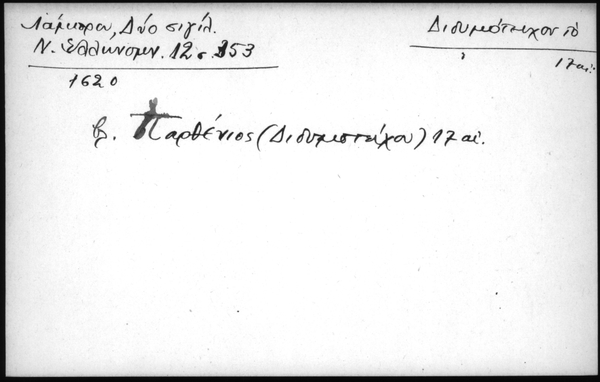 Λάμπρου, Δύο σιγίλ.
Ν. Ἑλληνομν. 12 σ. 153
Διδυμότειχον τὸ
17 αἰ.
1620
βλ. Παρθένιος (Διδυμοτείχου) 17 αἰ.